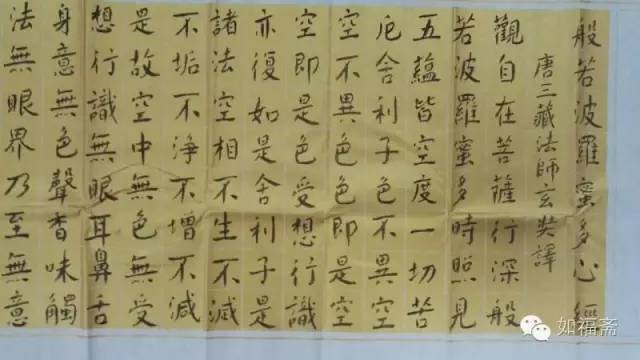 般若波羅蜜多心經
唐三藏法師玄奘譯
觀自在菩薩行深般
若波羅蜜多時照見
五蘊皆空度一切苦
厄舍利子色不異空
空不異色色即是空
空即是色受想行識
亦復如是舍利子是
諸法空相不生不滅
不垢不淨不增不減
是故空中無色無受
想行識無眼耳鼻舌
身意無色聲香味觸
法無眼界乃至無意
如福斋